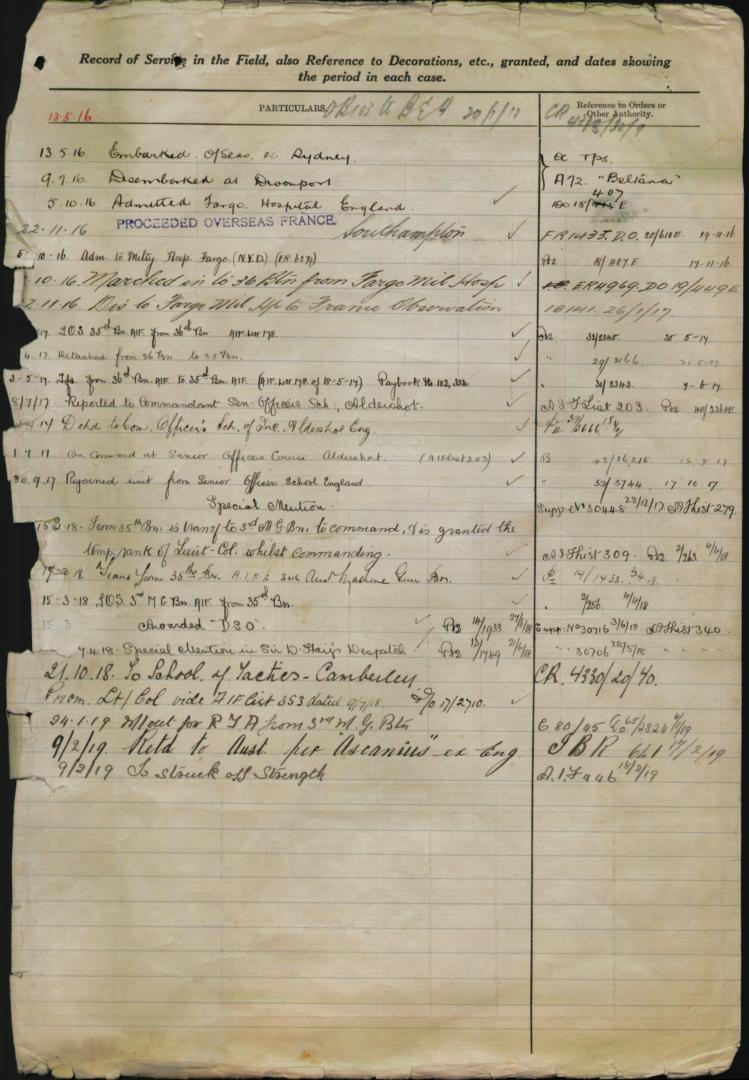 Record of Service in the Field, also Reference to Decorations, etc., granted, and dates showing
the period in each case.
13.5.16 PARTICULARS 20/1/17 Reference to Orders or
Other Authority.
CR
13.5.16. Embarked Oseas. at Sydney. A Tps.
9.7.16 Disembarked at Devonport A72. "Beltana"
5.10.16 Admitted Fargo. Hospital England. 407
22.11.16 PROCEEDED OVERSEAS FRANCE. Southampton FR1433. D.O. 20/610E 29-11-16
5 10.16. Adm. to Milty Hosp. Fargo. (N.Y.D.) (ER 6279) A2 18/407E 17-11-16
10.16. Marched in to 36 Btn from Fargo Mil Hosp ER4969. DO 19/449E
2.11.16. Dis to Fargo Mil Hp to France Observation 26/1/17.
17. T.O.S. 35th Bn. AIF. from 36th Bn 32/2345 5-17.
4.17. Detached from 36 Bn. to 35 Bn.
3-5-17. Tfs. from 36th Bn. AIF. to 35th Bn. AIF. (AIF List 178 of 18-5-17) Paybook No. 102, 31/2343. 9-6-17
8/7/17. Reported to Commandant Sen. Officers Sch., Aldershot. A I F List 203. 40/3360E
Detd to Com. Officers Sch. of Inc. Aldershot Eng.
1.7.17 On command at Senior Officers Course Aldershot. (AIF List 203)
30.9.17 Rejoined unit from Senior Officer School England 53/5744 17.10.17.
Special Mention. Supp. No 30448 28/12/17 AIF List 279.
15.3.18. From 35th Bn. is transf to 3rd M.G.Bn. to command, & is granted the
temp. rank of Lieut-Col. whilst commanding. A I F List 309. 2/263 4/4/18
Trans from 35th Bn. A.I.F. to 3rd Aust Machine Gun Bn. 14/1433.
15-3-18 T.O.S. 3rd M G Bn. AIF. from 35th Bn. 2/256. 4/4/18
15 3 Awarded "D S O". 14/1933 27/6/18 Supp. No 30716 3/6/18. AIF List 340.
7.4.18. Special Mention in Sir D. Haig's Despatch 13/1749 21/6/18 " 30706 28/5/18
21.10.18. To School of Tactics - Camberley CR. 4330/20/40.
Prom. Lt/Col vide AIF List 353 dated 9/7/18. D/O 17/2710.
24.1.19 M/out for R T A from 3rd M. G. Btn C 80/45
9/2/19 Retd to Aust per "Ascanius" ex Eng T B R 641 17/2/19
9/2/19 To struck off Strength A.I.F 446 18/2/19